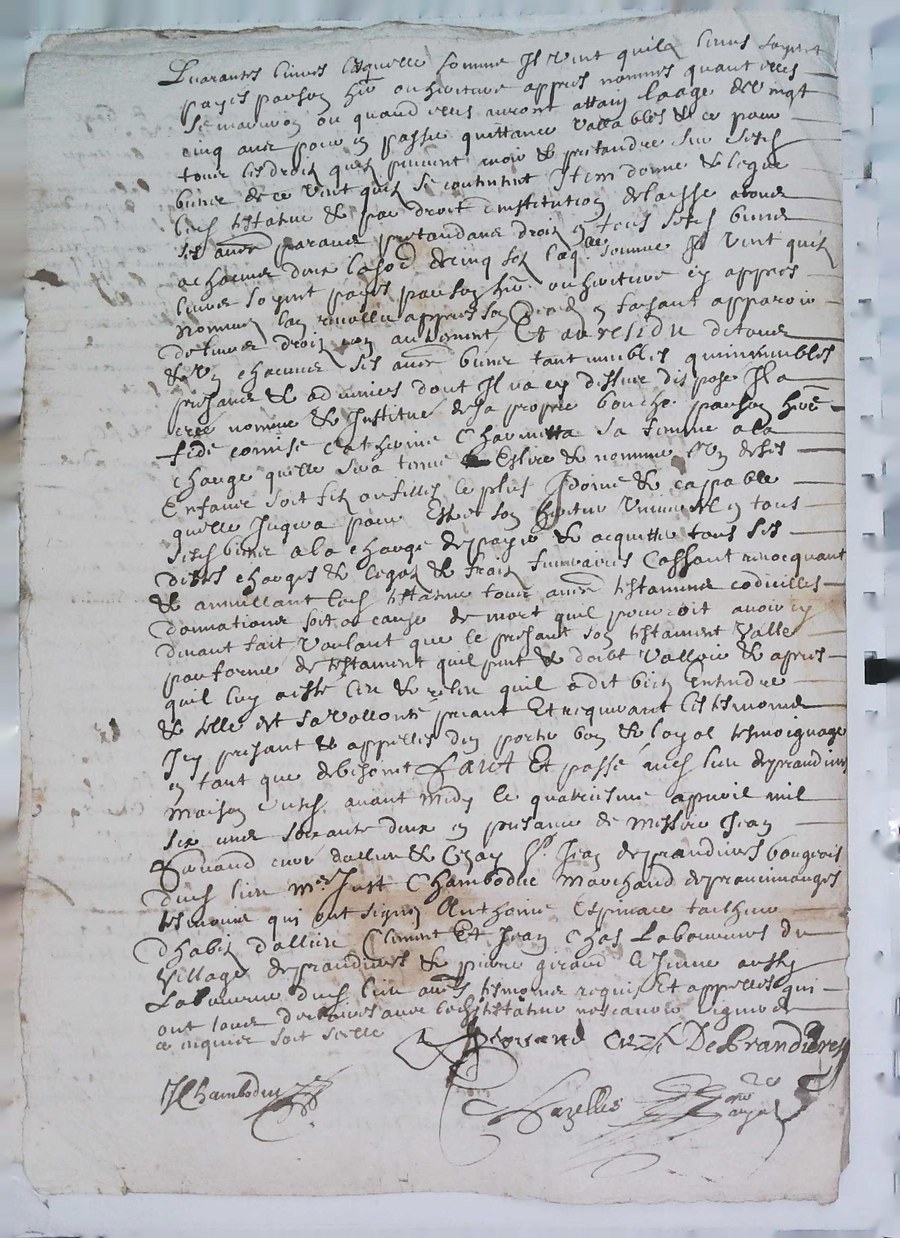 Quarantes livres laquelle somme Il veut quila leurs soyent
payes par son her ou heritiere appres nommes quant elles
se mariron ou quand elles auront attain laage de vingt
cinq ans pour en passer quittance vallables & ce pour
tous les droitz quelz peuvent avoir & pretandre sur sesd
biens & de ce veut quilz se contentent Item donne & legue
led testateur & par droit dinstitution delaisse a tous
ses autres parans pretandans droitz en tous sesd biens
a chacun deux la somme de cinq solz laqlle somme Il veut quilz
leurs soyent payes par son her ou heritiere cy appres
nommes lan revollu appres son deces en faisant apparoir
de leurs droitz non autrement Et au residu de tous
& un chacuns ses autres biens tant meubles quimmeubles
presans & advenirs dont Il na cy dessus dispose Il a
cree nomme & Institue de sa propre bouche par son here
fide comise Catherine Charmetta sa femme a la
charge quelle sera tenue Eslire & nommer lun de ses
Enfans soit filz ou filles le plus Idoine & cappable
quelle Jugera pour Estre son heritier universel en tous
sesd biens a la charge de payer & acquitter tous ses
debtes charges & legatz & fraitz funeraires Cassant revocquant
& annullant led testateur tous autres testamens codicilles
donnations soit a cause de mort quil pourroit avoir cy
devant fait voulant que le presant son testament valle
par forme de testament quil peut & doibt valloir & apres
quil luy a este leu & releu quil a dit bien entendre
& telle est sa vollonte priant Et requerant les tesmoins
Icy presant & appelles den porter bon & loyal tesmoignage
en tant que de besoint Faict Et passe aud lieu de prandieres
maison dud avant midy le quatriesme apvril mil
six cens soixante deux en presance de messire Jean
cure dallieu & Cezay Sr Jean de prandieres bourgeois
dud lieu Mre Just Chambodue Marchand
tesmoins qui ont signez Anthoine Espinace
dhabitz dallieu Climent Et Jean Chas Laboureurs du
village de prandieres & pierre giraud le Jeune aussy
Laboureur dud lieu autres tesmoins requis Et appelles qui
ont tous declaires avec led testateur ne scavoir signer de
ce enquier soit scelle
cuze DePrandieres
JChambodue
Cazelles nore royal